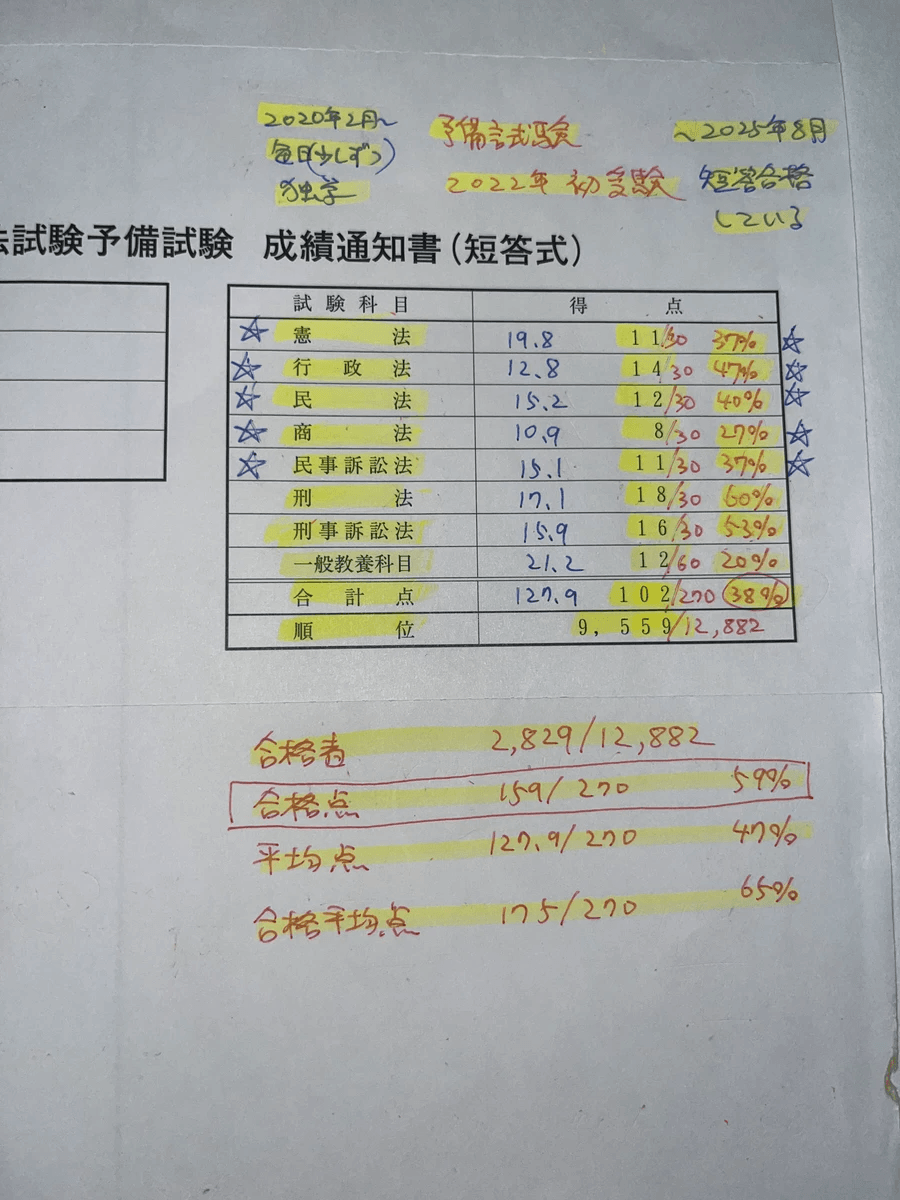 2020年2月～ 予備試験 ～2025年8月
毎日(少しずつ)
独学 2022年 初受験 短答合格
している
法試験予備試験 成績通知書(短答式)
試験科目 得点
☆ 憲法 19.8 11/30 37% ☆
☆ 行政法 12.8 14/30 47% ☆
☆ 民法 15.2 12/30 40% ☆
☆ 商法 10.9 8/30 27% ☆
☆ 民事訴訟法 15.1 11/30 37% ☆
刑法 17.1 18/30 60%
刑事訴訟法 15.9 16/30 53%
一般教養科目 21.2 12/60 20%
合計点 127.9 102/270 38%
順位 9,559/12,882
合格者 2,829/12,882
合格点 159/270 59%
平均点 127.9/270 47%
合格平均点 175/270 65%